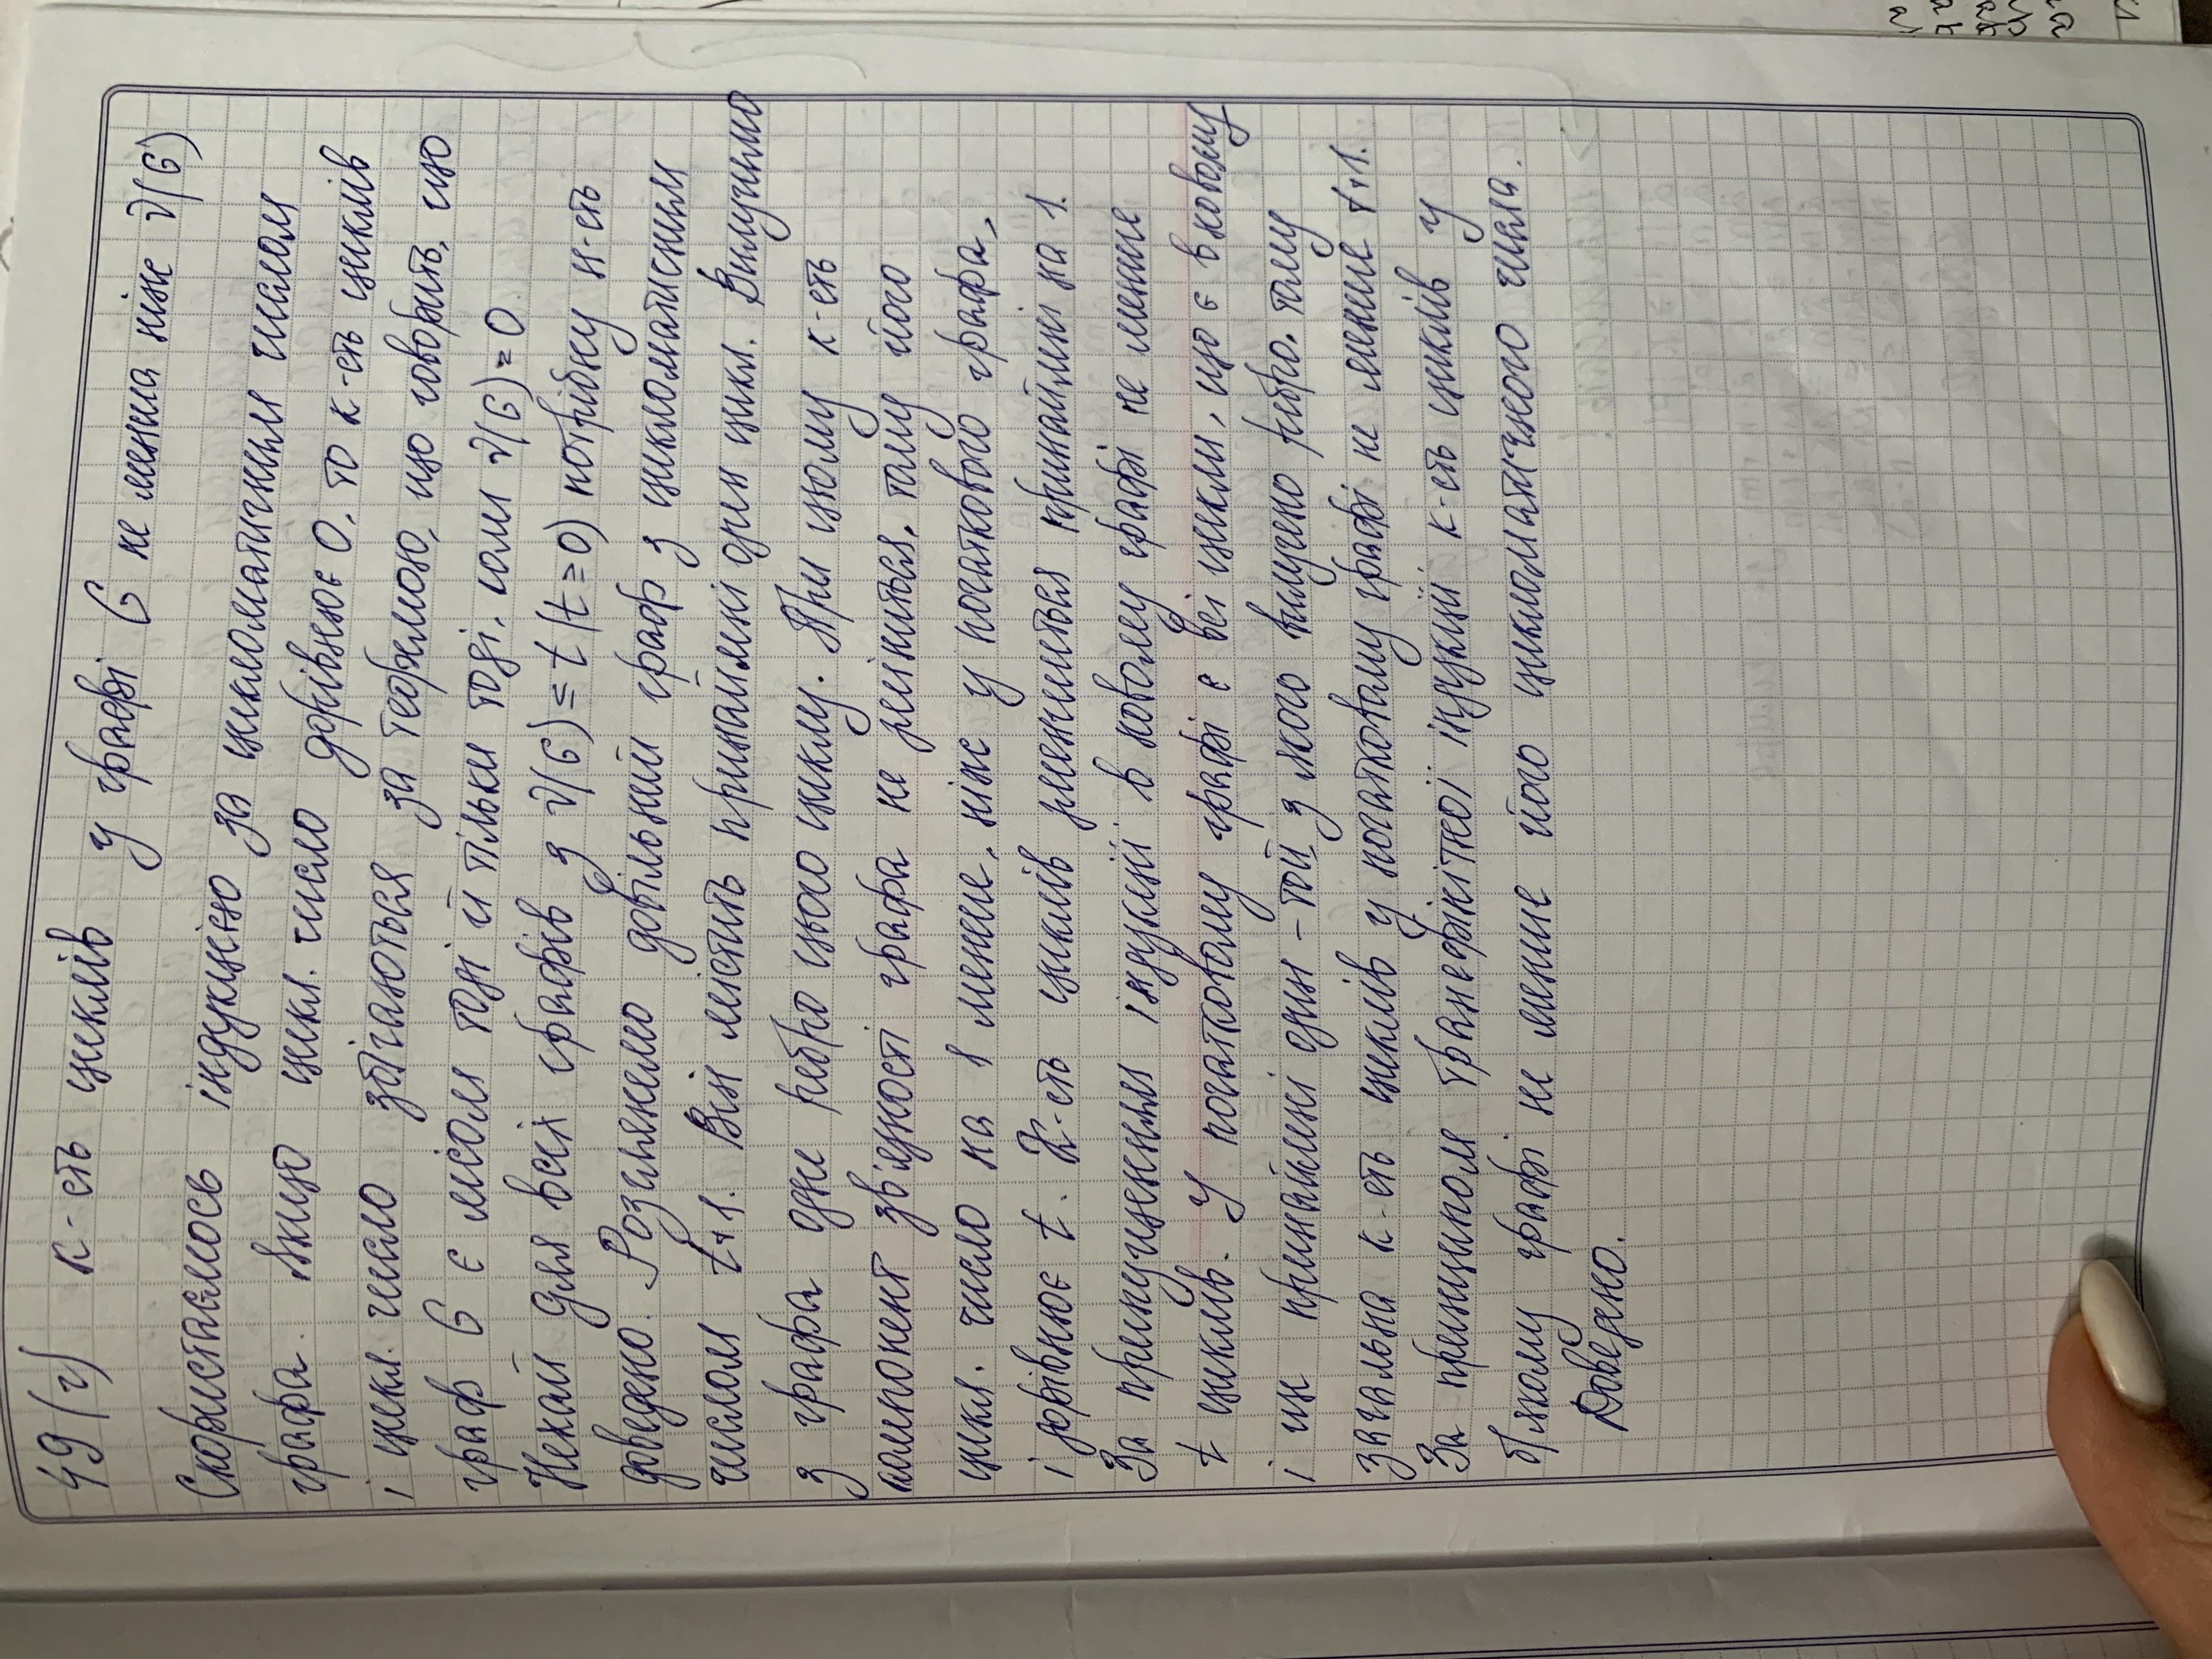 49(г) к-сть циклів у графі G не менша ніж ν(G)
Скористаємось індукцією за цикломатичним числом
графа. Якщо цикл. число дорівнює 0, то к-сть циклів
і цикл. число збігаються за теоремою, що говорить, що
граф G є лісом тоді й тільки тоді, коли ν(G)=0.
Нехай для всіх графів з ν(G)≤t (t≥0) потрібну н-сть
доведено. Розглянемо довільний граф з цикломатисним
числом t+1. Він містить принаймні один цикл. Вилучимо
з графа одне ребро цього циклу. При цьому к-сть
компонент зв'язності графа не зміниться, тому його
цикл. число на 1 менше, ніж у початкового графа,
і дорівнює t. К-сть циклів зменшиться принаймні на 1.
За припущенням індукції в новому графі не менше
t циклів. У початковому графі є всі цикли, що є в новому
і ще принаймні один – той, з якого вилучено ребро. тому
загальна к-сть циклів у початковому графі не менше t+1.
За принципом трансфінітної індукції к-сть циклів у
б/якому графі не менше його цикломатичного числа.
Доведено.